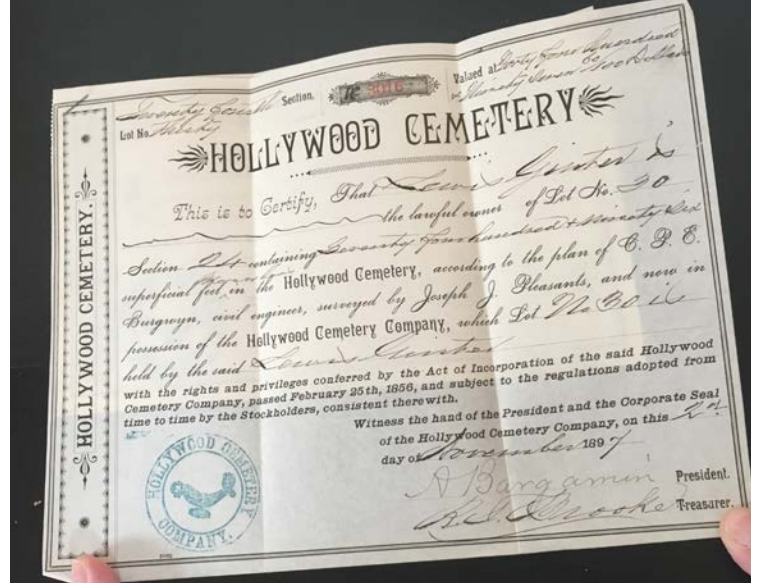 Twenty Fourth Section. № 3016 Valued at Forty Four Hundred
Lot No. Thirty & Ninety Seven 60/100 Dollars
HOLLYWOOD CEMETERY
This is to Certify, That Lewis Ginter is
the lawful owner of Lot No. 30
Section 24 containing Seventy four hundred & Ninety Six
superficial feet, in the Hollywood Cemetery, according to the plan of C. P. E.
Burgwyn, civil engineer, surveyed by Joseph J. Pleasants, and now in
possession of the Hollywood Cemetery Company, which Lot No 30 is
held by the said Lewis Ginter
with the rights and privileges conferred by the Act of Incorporation of the said Hollywood
Cemetery Company, passed February 25th, 1856, and subject to the regulations adopted from
time to time by the Stockholders, consistent therewith.
Witness the hand of the President and the Corporate Seal
of the Hollywood Cemetery Company, on this 2nd
day of November 1897
A Bargamin President.
Treasurer.
HOLLYWOOD CEMETERY.
HOLLYWOOD CEMETERY
COMPANY.